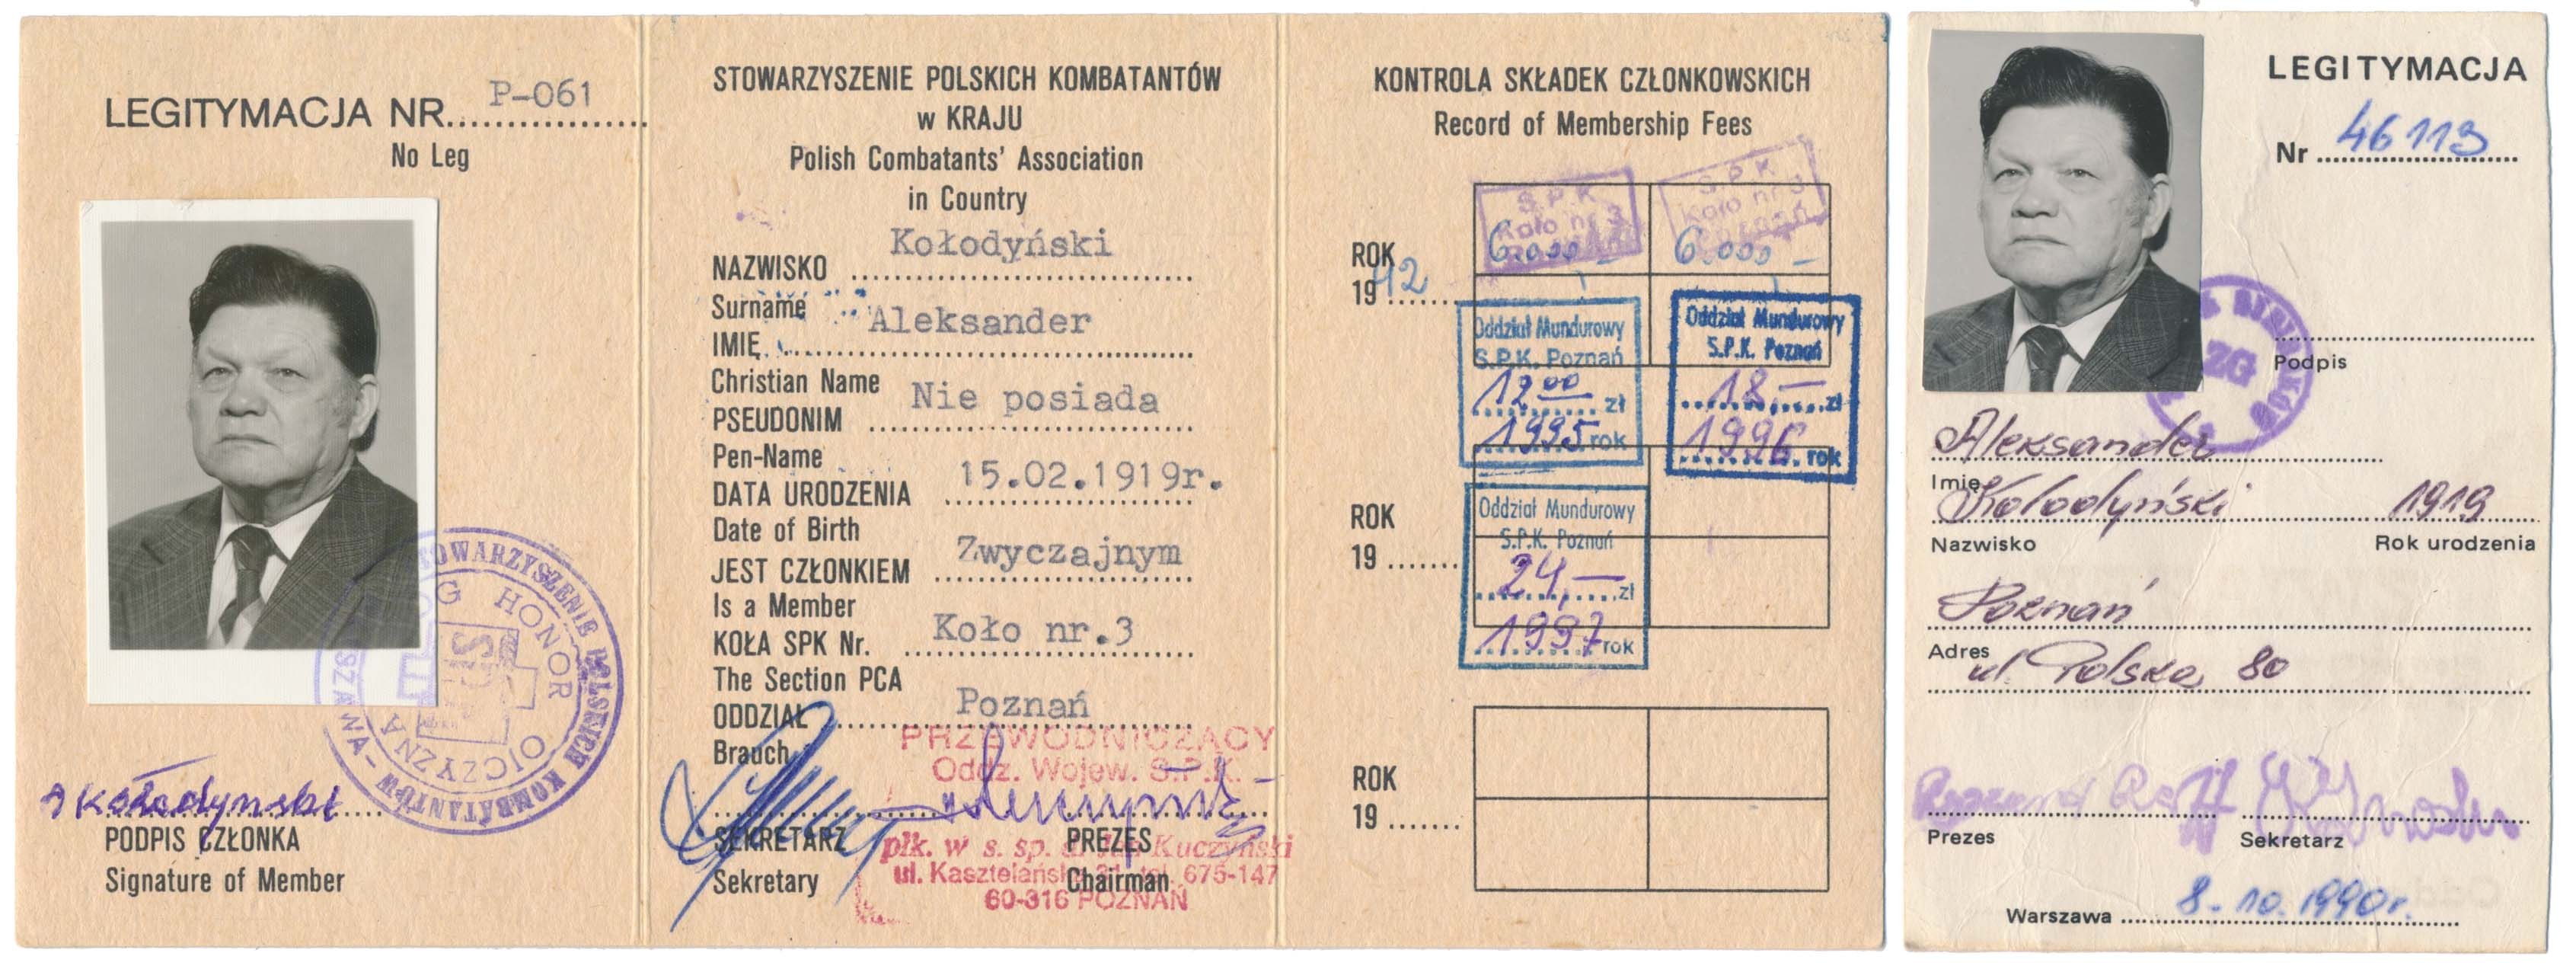 LEGITYMACJA NR. P-061
No Leg
STOWARZYSZENIE POLSKICH KOMBATANTÓW
HONOR
OJCZYZNA
A Kołodyński
PODPIS CZŁONKA
Signature of Member
STOWARZYSZENIE POLSKICH KOMBATANTÓW
w KRAJU
Polish Combatants' Association
in Country
Kołodyński
NAZWISKO
Surname
Aleksander
IMIĘ
Christian Name
Nie posiada
PSEUDONIM
Pen-Name
15.02.1919r.
DATA URODZENIA
Date of Birth
Zwyczajnym
JEST CZŁONKIEM
Is a Member
Koło nr.3
KOŁA SPK Nr.
The Section PCA
Poznań
ODDZIAŁ
Brauch
PRZEWODNICZĄCY
Oddz. Wojew. S.P.K.
SEKRETARZ PREZES
płk. w s. sp. Kuczyński
ul. Kasztelańska tel. 675-147
Sekretary Chairman
60-316 POZNAŃ
KONTROLA SKŁADEK CZŁONKOWSKICH
Record of Membership Fees
S.P.K. S.P.K
Koło nr 3 Koło nr 3
6.000 - 6.000 -
ROK
19
Oddział Mundurowy
S.P.K. Poznań
12 00 zł
1995 rok
Oddział Mundurowy
S.P.K. Poznań
18,- zł
1996. rok
ROK
19
Oddział Mundurowy
S.P.K. Poznań
24,- zł
1997 rok
ROK
19
LEGITYMACJA
Nr 46113
ZG
Podpis
Aleksander
Imię
Kołodyński 1919
Nazwisko Rok urodzenia
Poznań
Adres
ul. Polska 80
Prezes Sekretarz
Warszawa 8.10.1990r.